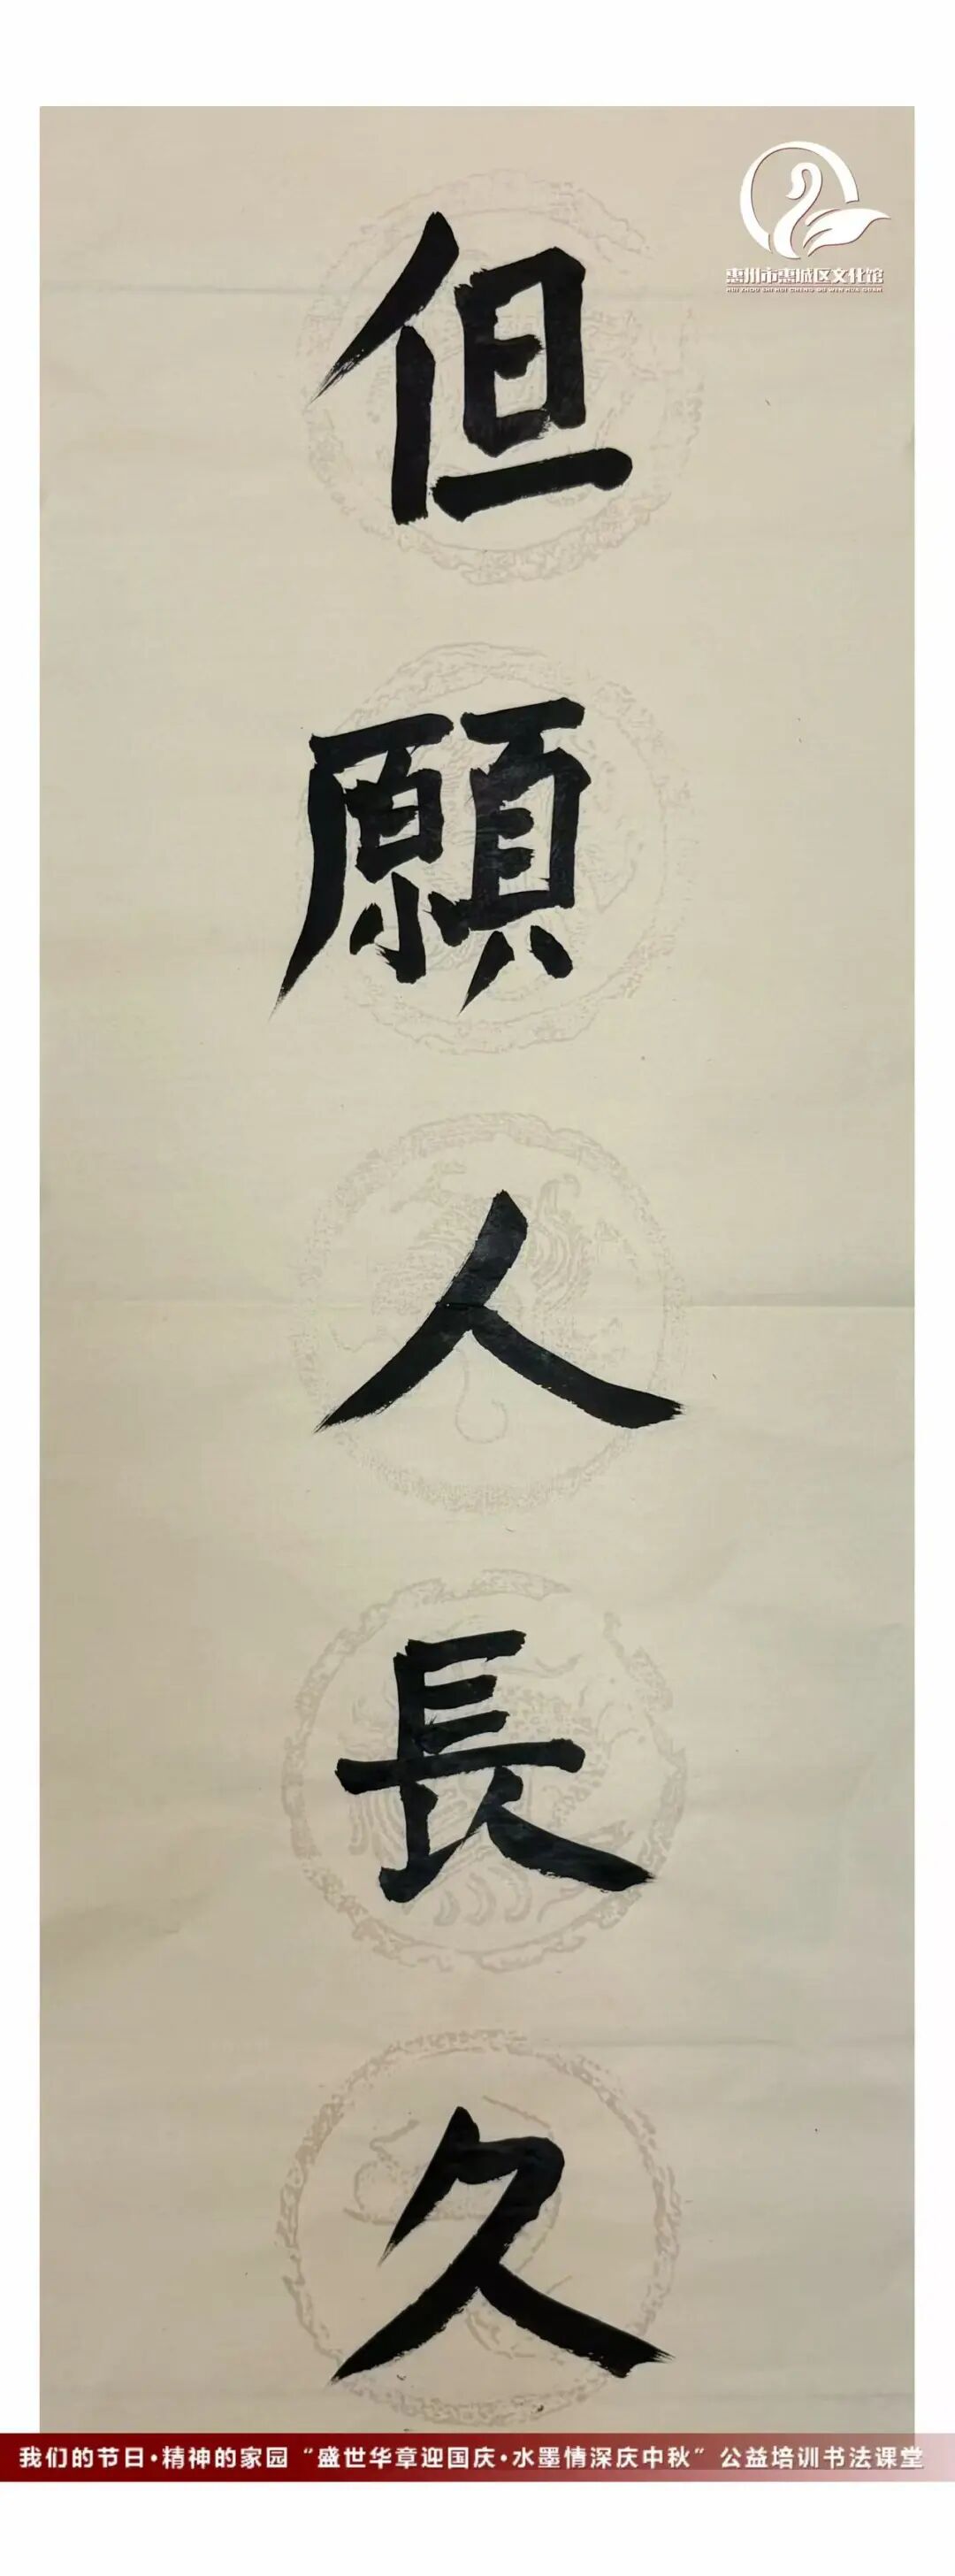 惠州市惠城区文化馆
HUI ZHOU SHI HUI CHENG QU WEN HUA GUAN
但願人長久
我们的节日·精神的家园“盛世华章迎国庆·水墨情深庆中秋”公益培训书法课堂